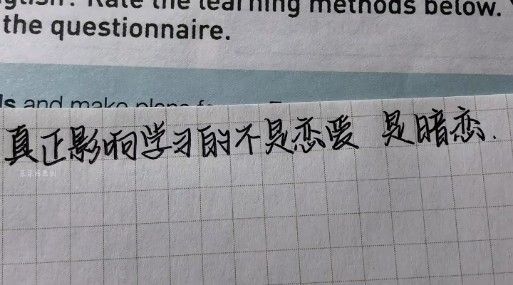 Rate the learning methods below.
the questionnaire.
ls and make plans
真正影响学习的不是恋爱 是暗恋.